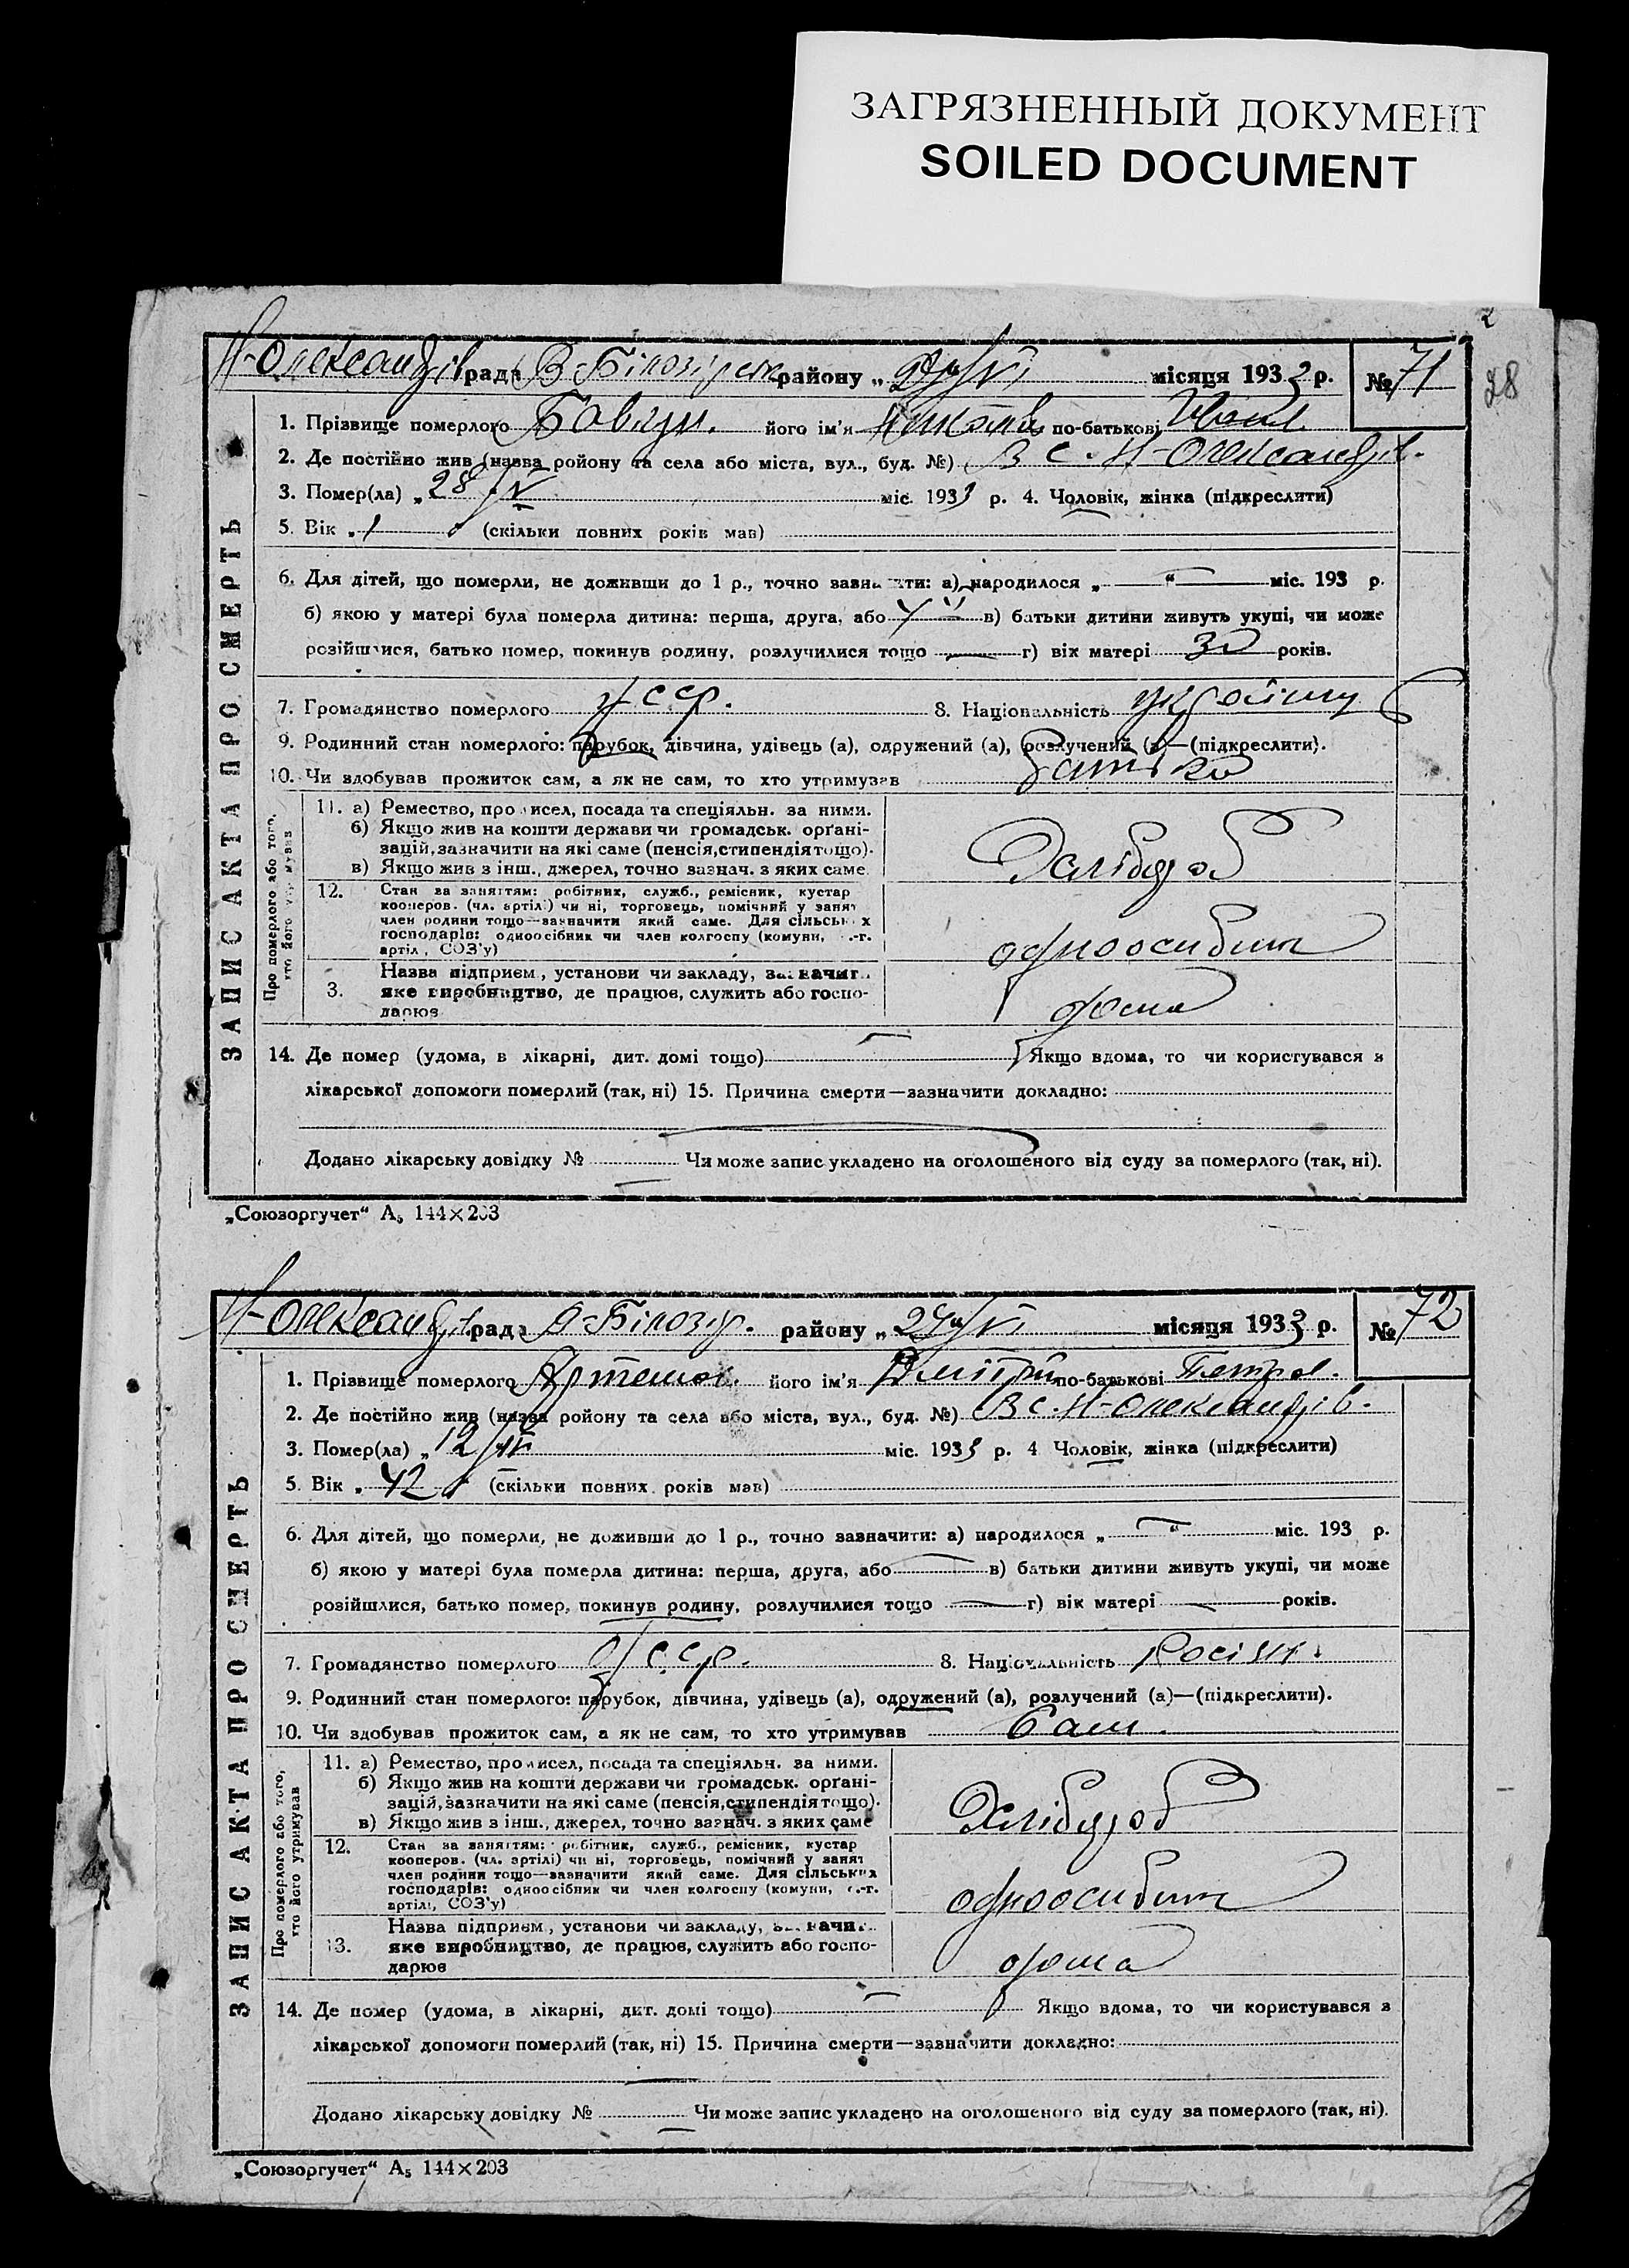 ЗАГРЯЗНЕННЫЙ ДОКУМЕНТ
SOILED DOCUMENT
28
Н-Олександрів рада В-Білозірськ району „24“/VI місяця 1933 р. № 71
1. Прізвище померлого його ім'я по-батькові Іван.
2. Де постійно жив (назва ройону та села або міста, вул., буд. №) В с. Н-Олександрів.
3. Помер(ла) „28/V міс. 1933 р. 4. Чоловік, жінка (підкреслити)
5. Вік „1 (скільки повних років мав)
6. Для дітей, що померли, не доживши до 1 р., точно зазна ити: а) народилося „ — “ міс. 193 р.
б) якою у матері була померла дитина: перша, друга, або 4 в) батьки дитини живуть укупі, чи може
розійшлися, батько помер, покинув родину, розлучилися тощо — г) вік матері 30 років.
7. Громадянство померлого УССР. 8. Національність україн
9. Родинний стан померлого: парубок, дівчина, удівець (а), одружений (а), розлучений (а)—(підкреслити).
10. Чи здобував прожиток сам, а як не сам, то хто утримував батько
ЗАПИС АКТА ПРО СМЕРТЬ
Про померлого або того, хто його утримував
11. а) Ремество, промисел, посада та спеціяльн. за ними.
б) Якщо жив на кошти держави чи громадськ. орґані-
зацій, зазначити на які саме (пенсія, стипендія тощо).
в) Якщо жив з інш., джерел, точно зазнач. з яких саме.
Хлібороб
12. Стан за заняттям: робітник, служб., ремісник, кустар
кооперов. (чл. артілі) чи ні, торговець, помічний у занят
член родини тощо—зазначити який саме. Для сільських
господарів: одноосібник чи член колгоспу (комуни, с.-г.
артіл., СОЗ'у)
одноосибник
Назва підприєм., установи чи закладу, зазначит
3. яке виробництво, де працює, служить або госпо-
дарює
дома
14. Де помер (удома, в лікарні, дит. домі тощо) — Якщо вдома, то чи користувався з
лікарської допомоги померлий (так, ні) 15. Причина смерти—зазначити докладно:
Додано лікарську довідку № — Чи може запис укладено на оголошеного від суду за померлого (так, ні).
„Союзоргучет“ А₅ 144×203
Н-Олександрів рада В-Білозір. району „24“/VI місяця 1933 р. № 72
1. Прізвище померлого Артемов. його ім'я Дмітрій по-батькові Петров.
2. Де постійно жив (назва ройону та села або міста, вул., буд. №) В с. Н-Олександрів.
3. Помер(ла) „12/ міс. 1933 р. 4 Чоловік, жінка (підкреслити)
5. Вік „42 (скільки повних років мав)
6. Для дітей, що померли, не доживши до 1 р., точно зазначити: а) народилося „ — “ міс. 193 р.
б) якою у матері була померла дитина: перша, друга, або — в) батьки дитини живуть укупі, чи може
розійшлися, батько помер, покинув родину, розлучилися тощо — г) вік матері — років.
7. Громадянство померлого УССР. 8. Національність Росіян.
9. Родинний стан померлого: парубок, дівчина, удівець (а), одружений (а), розлучений (а)—(підкреслити).
10. Чи здобував прожиток сам, а як не сам, то хто утримував Сам.
ЗАПИС АКТА ПРО СМЕРТЬ
Про померлого або того, хто його утримував
11. а) Ремество, промисел, посада та спеціяльн. за ними.
б) Якщо жив на кошти держави чи громадськ. орґані-
зацій, зазначити на які саме (пенсія, стипендія тощо).
в) Якщо жив з інш., джерел, точно зазнач. з яких саме
Хлібороб
12. Стан за заняттям: робітник, служб., ремісник, кустар
кооперов. (чл. артілі) чи ні, торговець, помічний у занят
член родини тощо—зазначити який саме. Для сільських
господарів: одноосібник чи член колгоспу (комуни, с.-г.
артілі, СОЗ'у)
одноосибник
Назва підприєм., установи чи закладу, зазначит
13. яке виробництво, де працює, служить або госпо-
дарює
дома
14. Де помер (удома, в лікарні, дит. домі тощо) — Якщо вдома, то чи користувався з
лікарської допомоги померлий (так, ні) 15. Причина смерти—зазначити докладно:
Додано лікарську довідку № — Чи може запис укладено на оголошеного від суду за померлого (так, ні).
„Союзоргучет“ А₅ 144×203